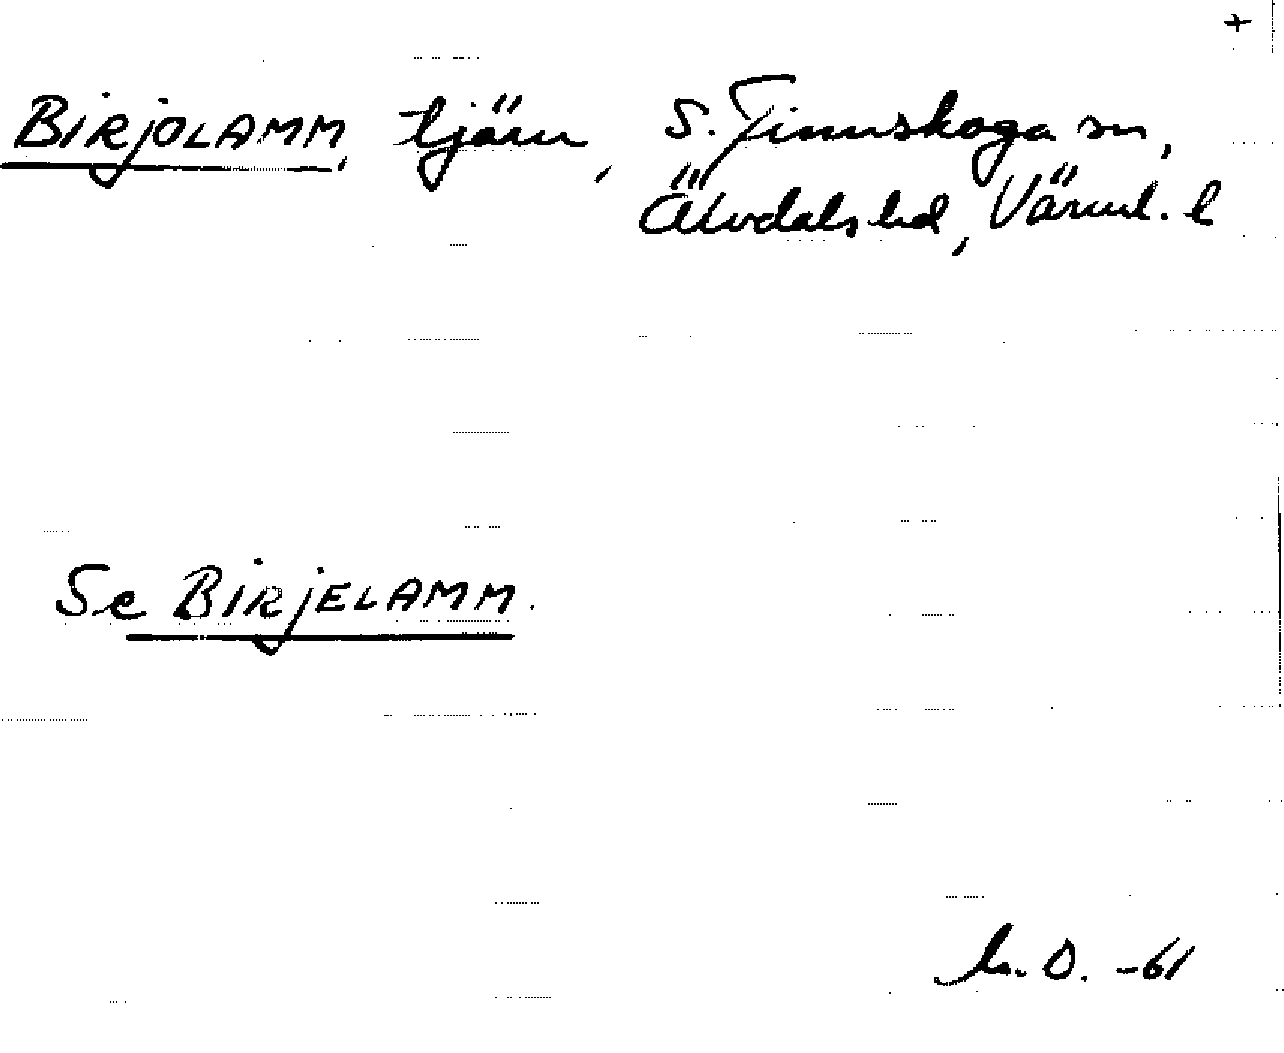 +
BIRJOLAMM, tjärn, S. Finnskoga sn,
Älvdals hd, Värml. l
Se BIRJELAMM.
D. -61